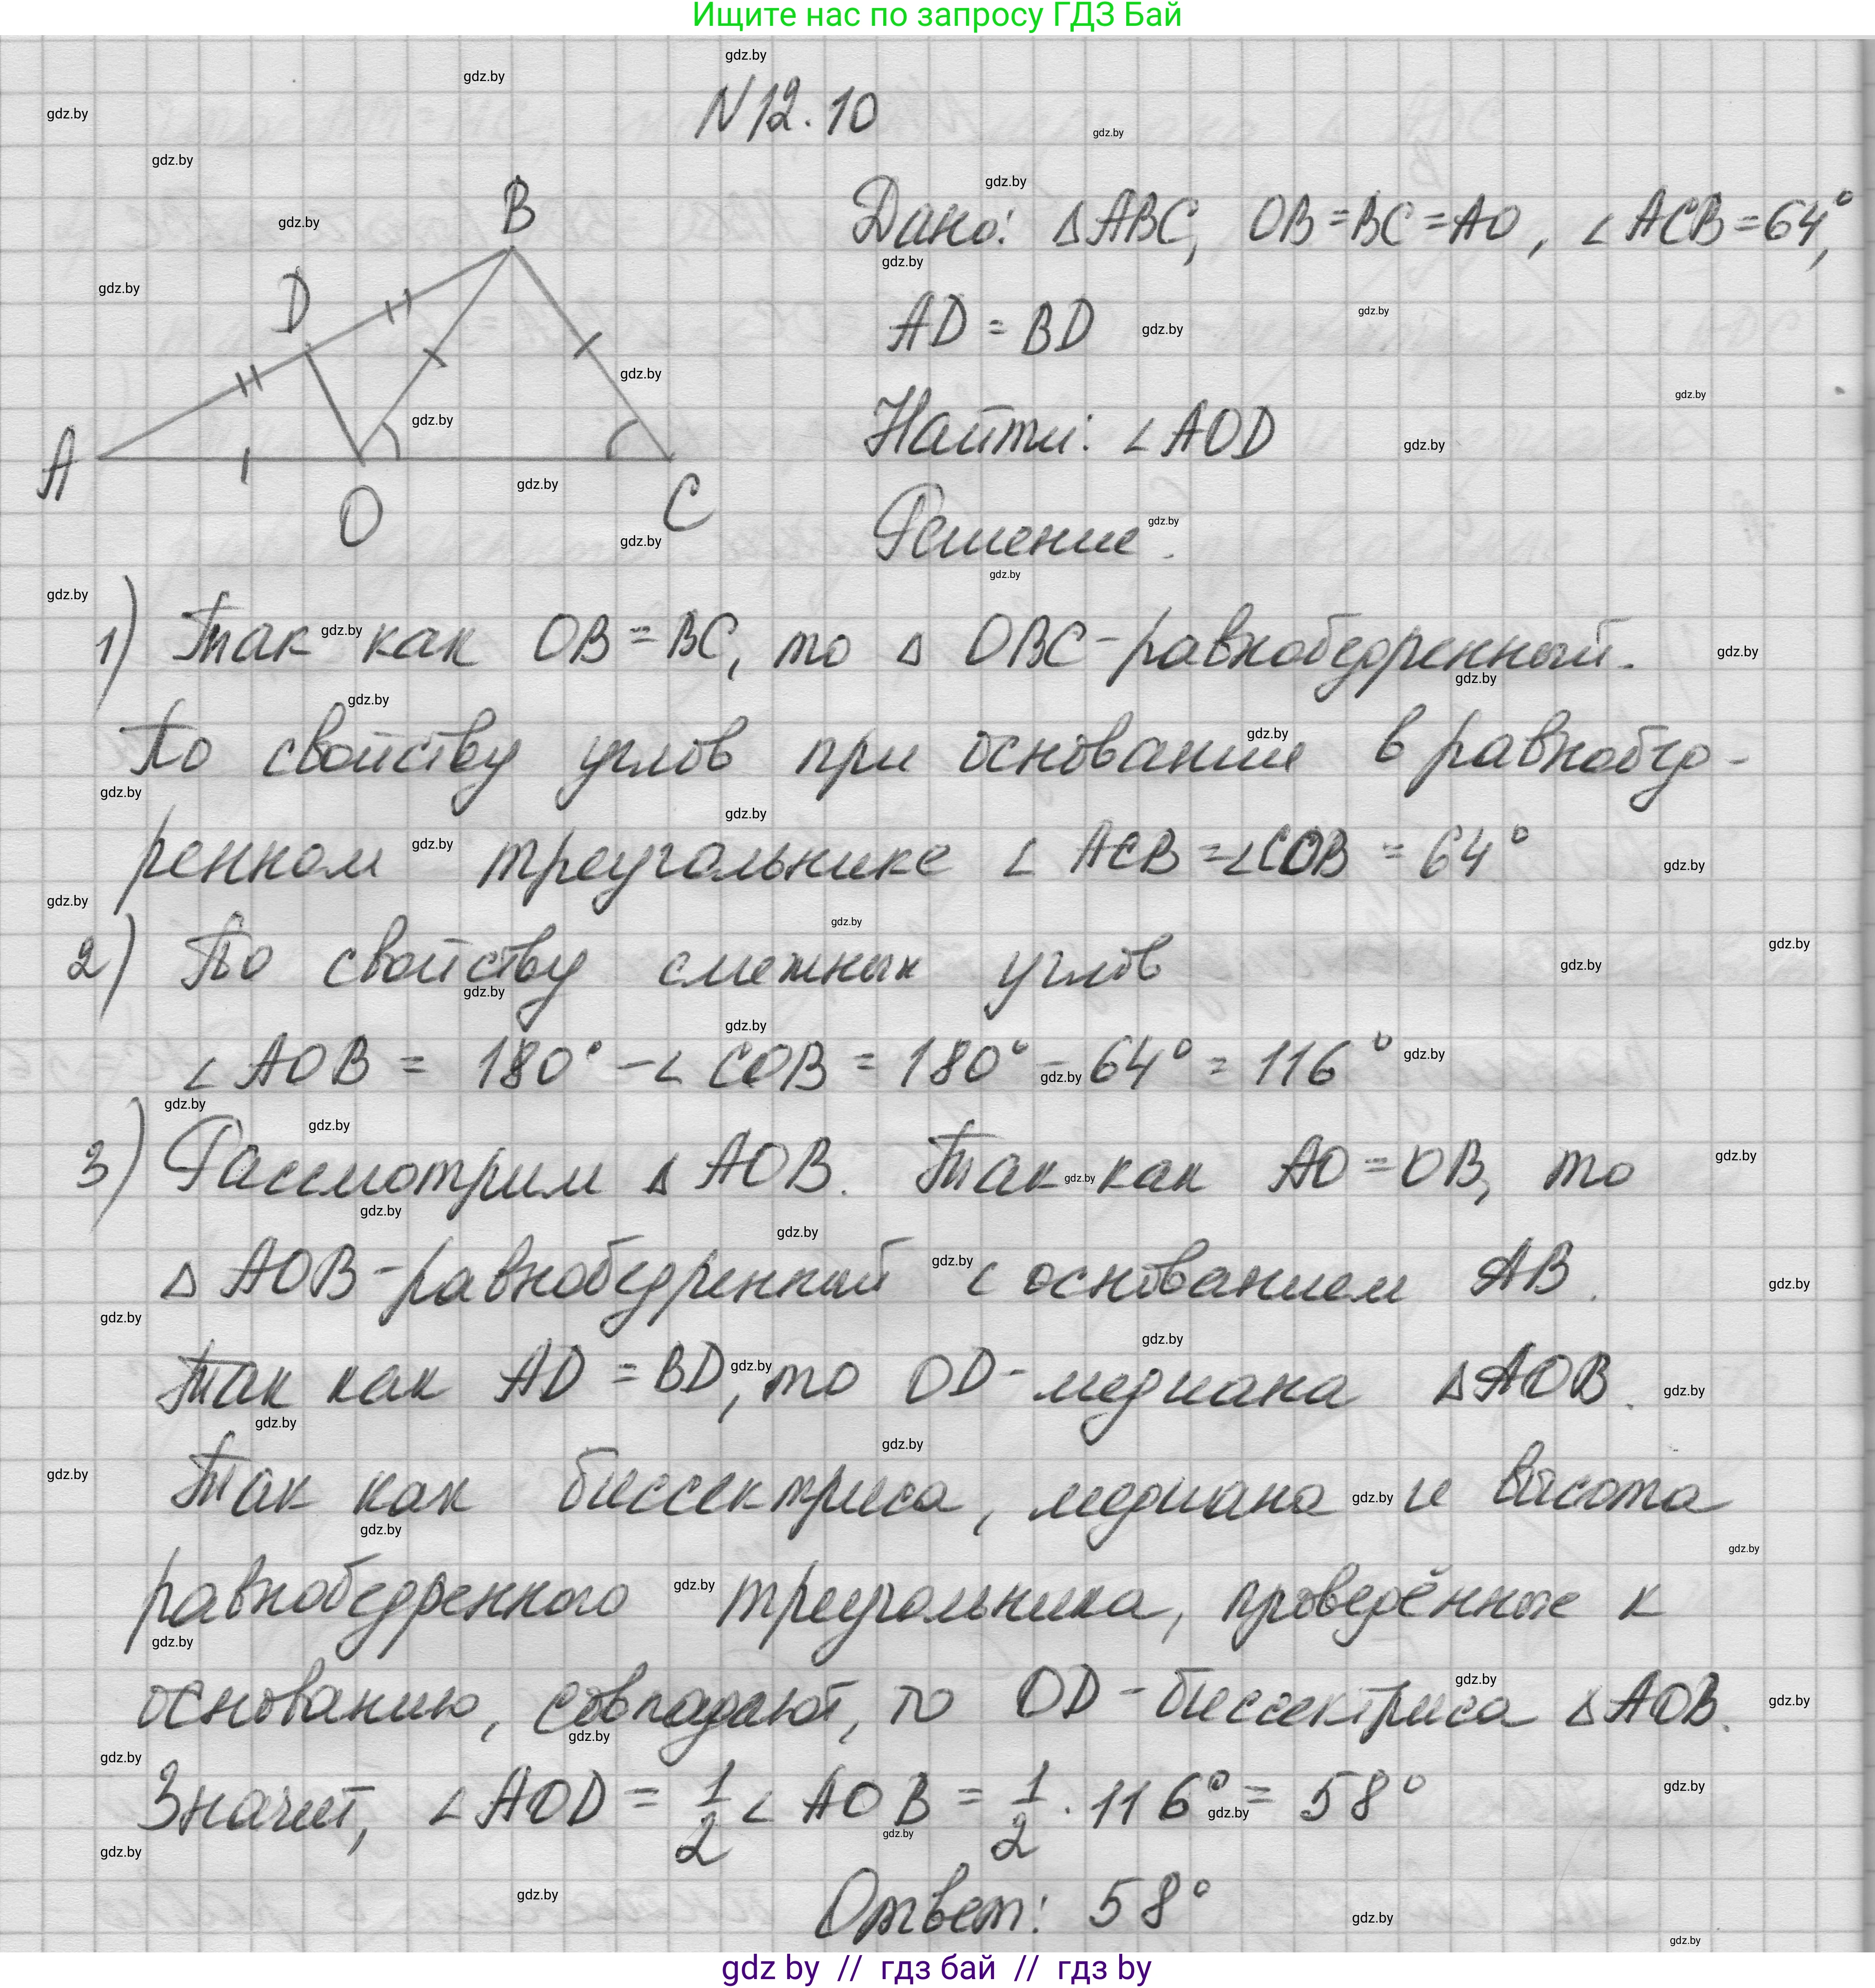 Ищите нас по запросу ГДЗ Бай
N 12.10
B
D
A
O
C
Дано: △ABC, OB=BC=AO, ∠ACB=64°,
AD = BD
Найти: ∠AOD
Решение.
1) Так как OB=BC, то △ OBC-равнобедренный.
По свойству углов при основании в равнобед-
ренном треугольнике ∠ ACB=∠COB = 64°
2) По свойству смежных углов
∠ AOB = 180° - ∠ COB = 180° - 64° = 116°
3) Рассмотрим △ AOB. Так как AO=OB, то
△ AOB-равнобедренный с основанием AB.
Так как AD = BD, то OD-медиана △AOB.
Так как биссектриса, медиана и высота
равнобедренного треугольника, проведённые к
основанию, совпадают, то OD-биссектриса △AOB.
Значит, ∠AOD = 1/2 ∠ AOB = 1/2 · 116° = 58°
Ответ: 58°
gdz by // гдз бай // гдз by